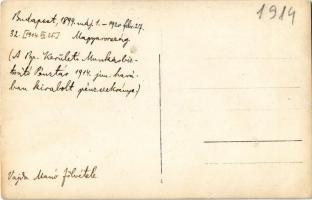 1914
Budapest, 1899. máj. 1. – 1920. febr. 27.
32. [914 VI 25] Magyarország
(A Bp. Kerületi Munkásbiz-
tosító Pénztár 1914. jun. havá-
ban kirabolt pénzszekrénye)
Vajda Manó fölvétele